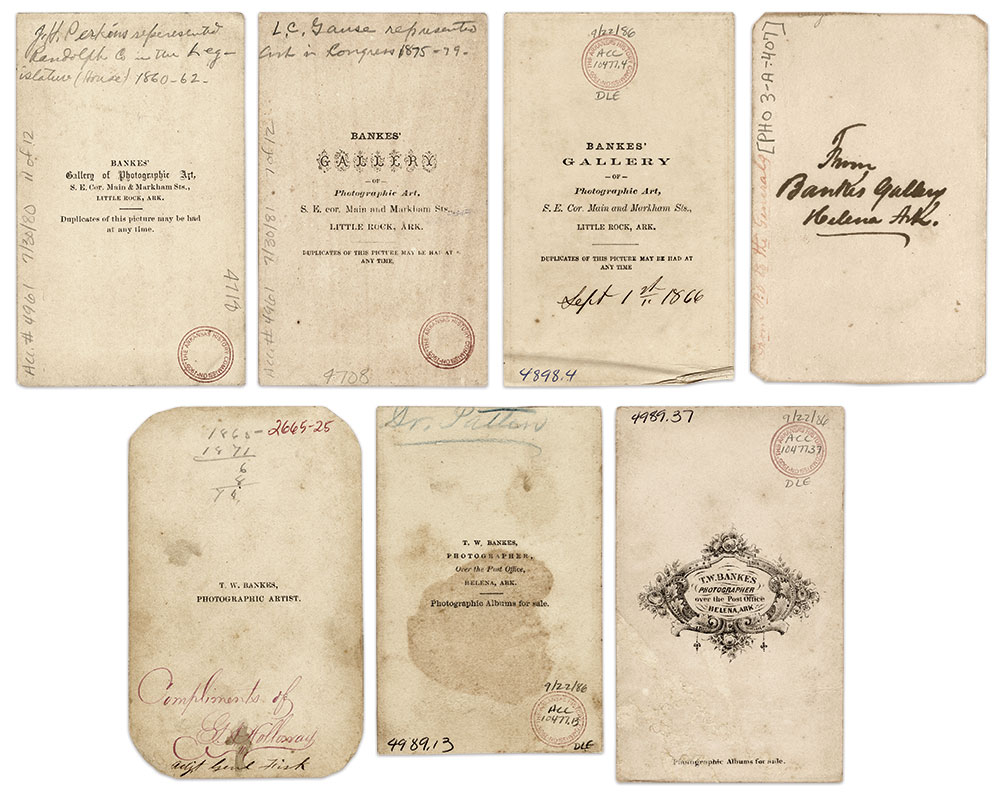 J.H. Perkins represented
Randolph Co in the Leg-
islature (House) 1860-62-
BANKES'
Gallery of Photographic Art,
S. E. Cor. Main & Markham Sts.,
LITTLE ROCK, ARK.
Duplicates of this picture may be had
at any time.
Acc.# 4961 7/30/80 11 of 12
471b
THE ARKANSAS HISTORY COMMISSION
L.C. Gause represented
Ark in Congress 1875-79-
BANKES'
GALLERY
—OF—
Photographic Art,
S. E. cor. Main and Markham Sts.
LITTLE ROCK, ARK.
DUPLICATES OF THIS PICTURE MAY BE HAD AT
ANY TIME.
Acc.# 4961 7/30/81 7 of 12
4708
THE ARKANSAS HISTORY COMMISSION
9/22/86
ACC
10477.4
DLE
BANKES'
GALLERY
—OF—
Photographic Art,
S. E. Cor. Main and Markham Sts.,
LITTLE ROCK, ARK.
DUPLICATES OF THIS PICTURE MAY BE HAD AT
ANY TIME
Sept 1st 1866
4898.4
[PHO 3-A-407]
From
Bankes Gallery
Helena Ark.
1860-
2665-25
1871
6
T. W. BANKES,
PHOTOGRAPHIC ARTIST.
Compliments of
Holloway
Genl Fisk
Dr. Patton
T. W. BANKES,
PHOTOGRAPHER,
Over the Post Office,
HELENA, ARK.
Photographic Albums for sale.
9/22/86
ACC
10477.13
DLE
4989.13
4989.37
9/22/86
ACC
10477.37
DLE
T.W. BANKES
PHOTOGRAPHER
over the Post Office
HELENA, ARK.
Photographic Albums for sale.